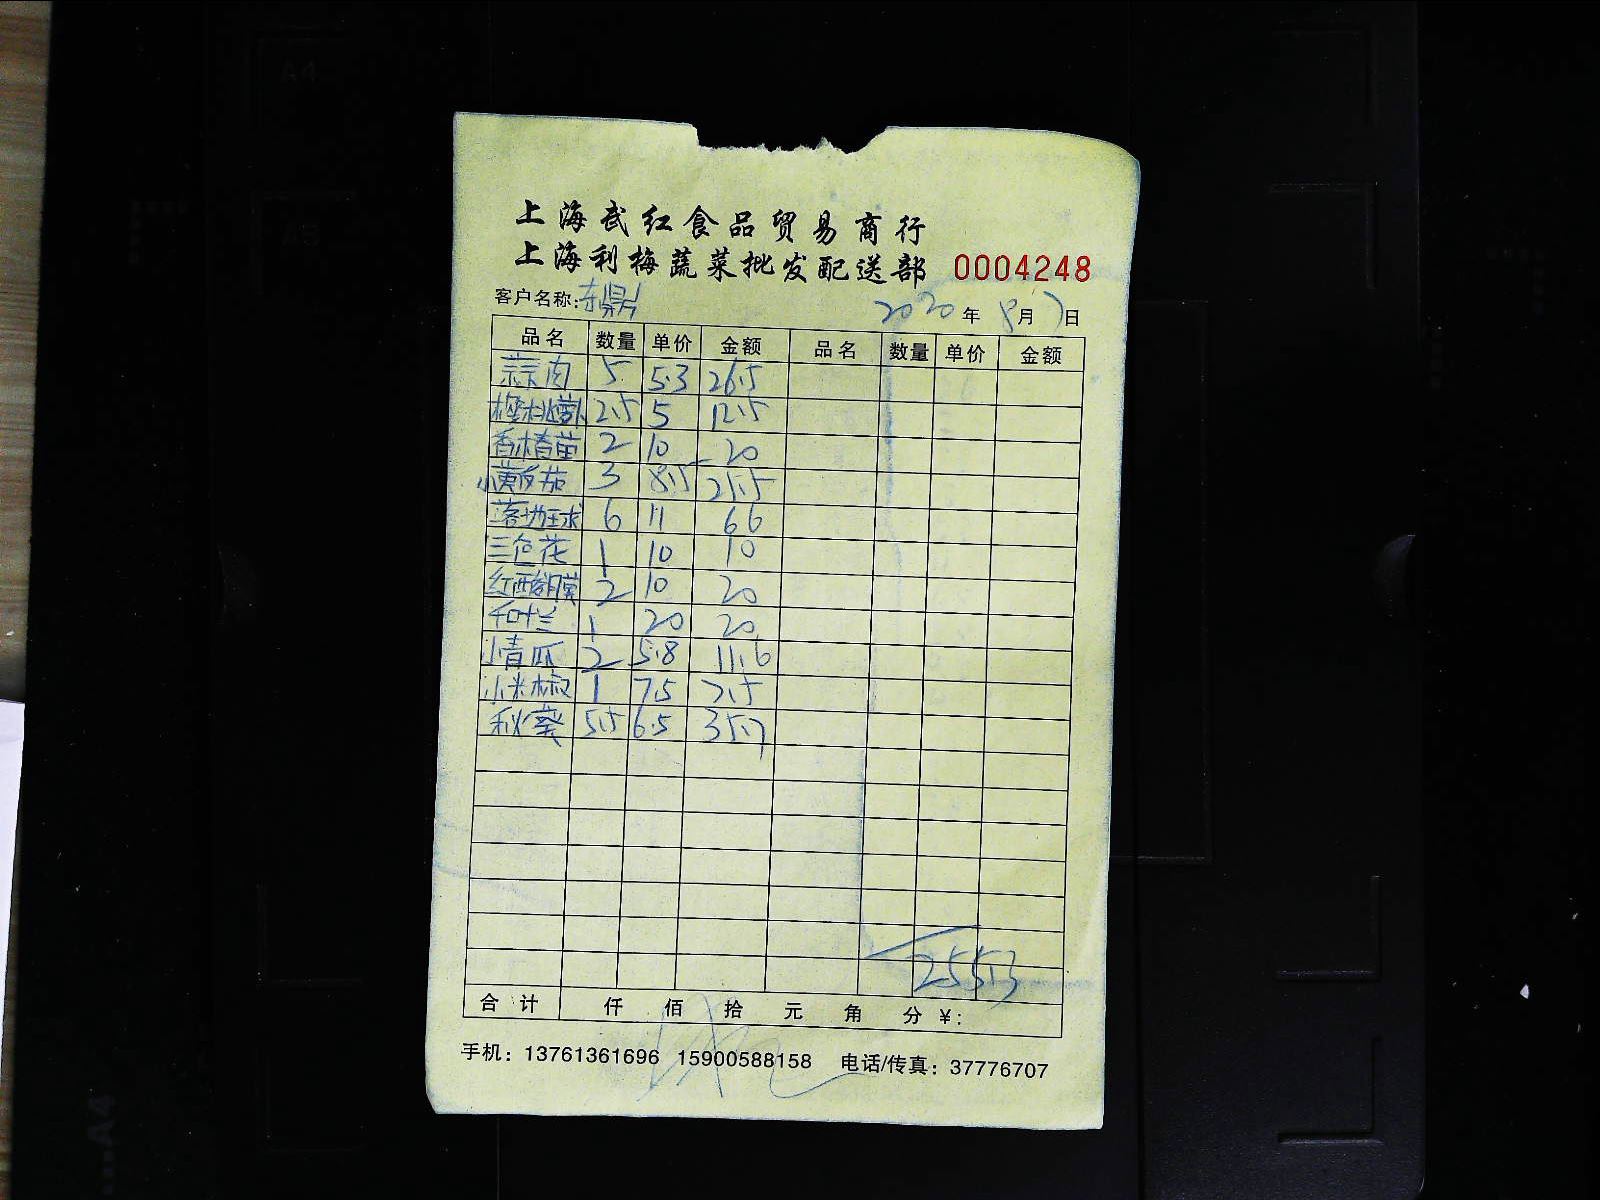 上海武红食品贸易商行
上海利梅蔬菜批发配送部 0004248
客户名称: 东鼎 2020年 8月 7日
品名 数量 单价 金额 品名 数量 单价 金额
蒜肉 5 5.3 26.5
樱桃萝卜 2.5 5 12.5
香椿苗 2 10 20
小黄番茄 3 8.5 25.5
6 11 66
三色花 1 10 10
2 10 20
1 20 20
小青瓜 2 5.8 11.6
小米椒 1 7.5 7.5
秋葵 5.5 6.5 35.7
255.3
合计 仟 佰 拾 元 角 分 ¥:
手机: 13761361696 15900588158 电话/传真: 37776707